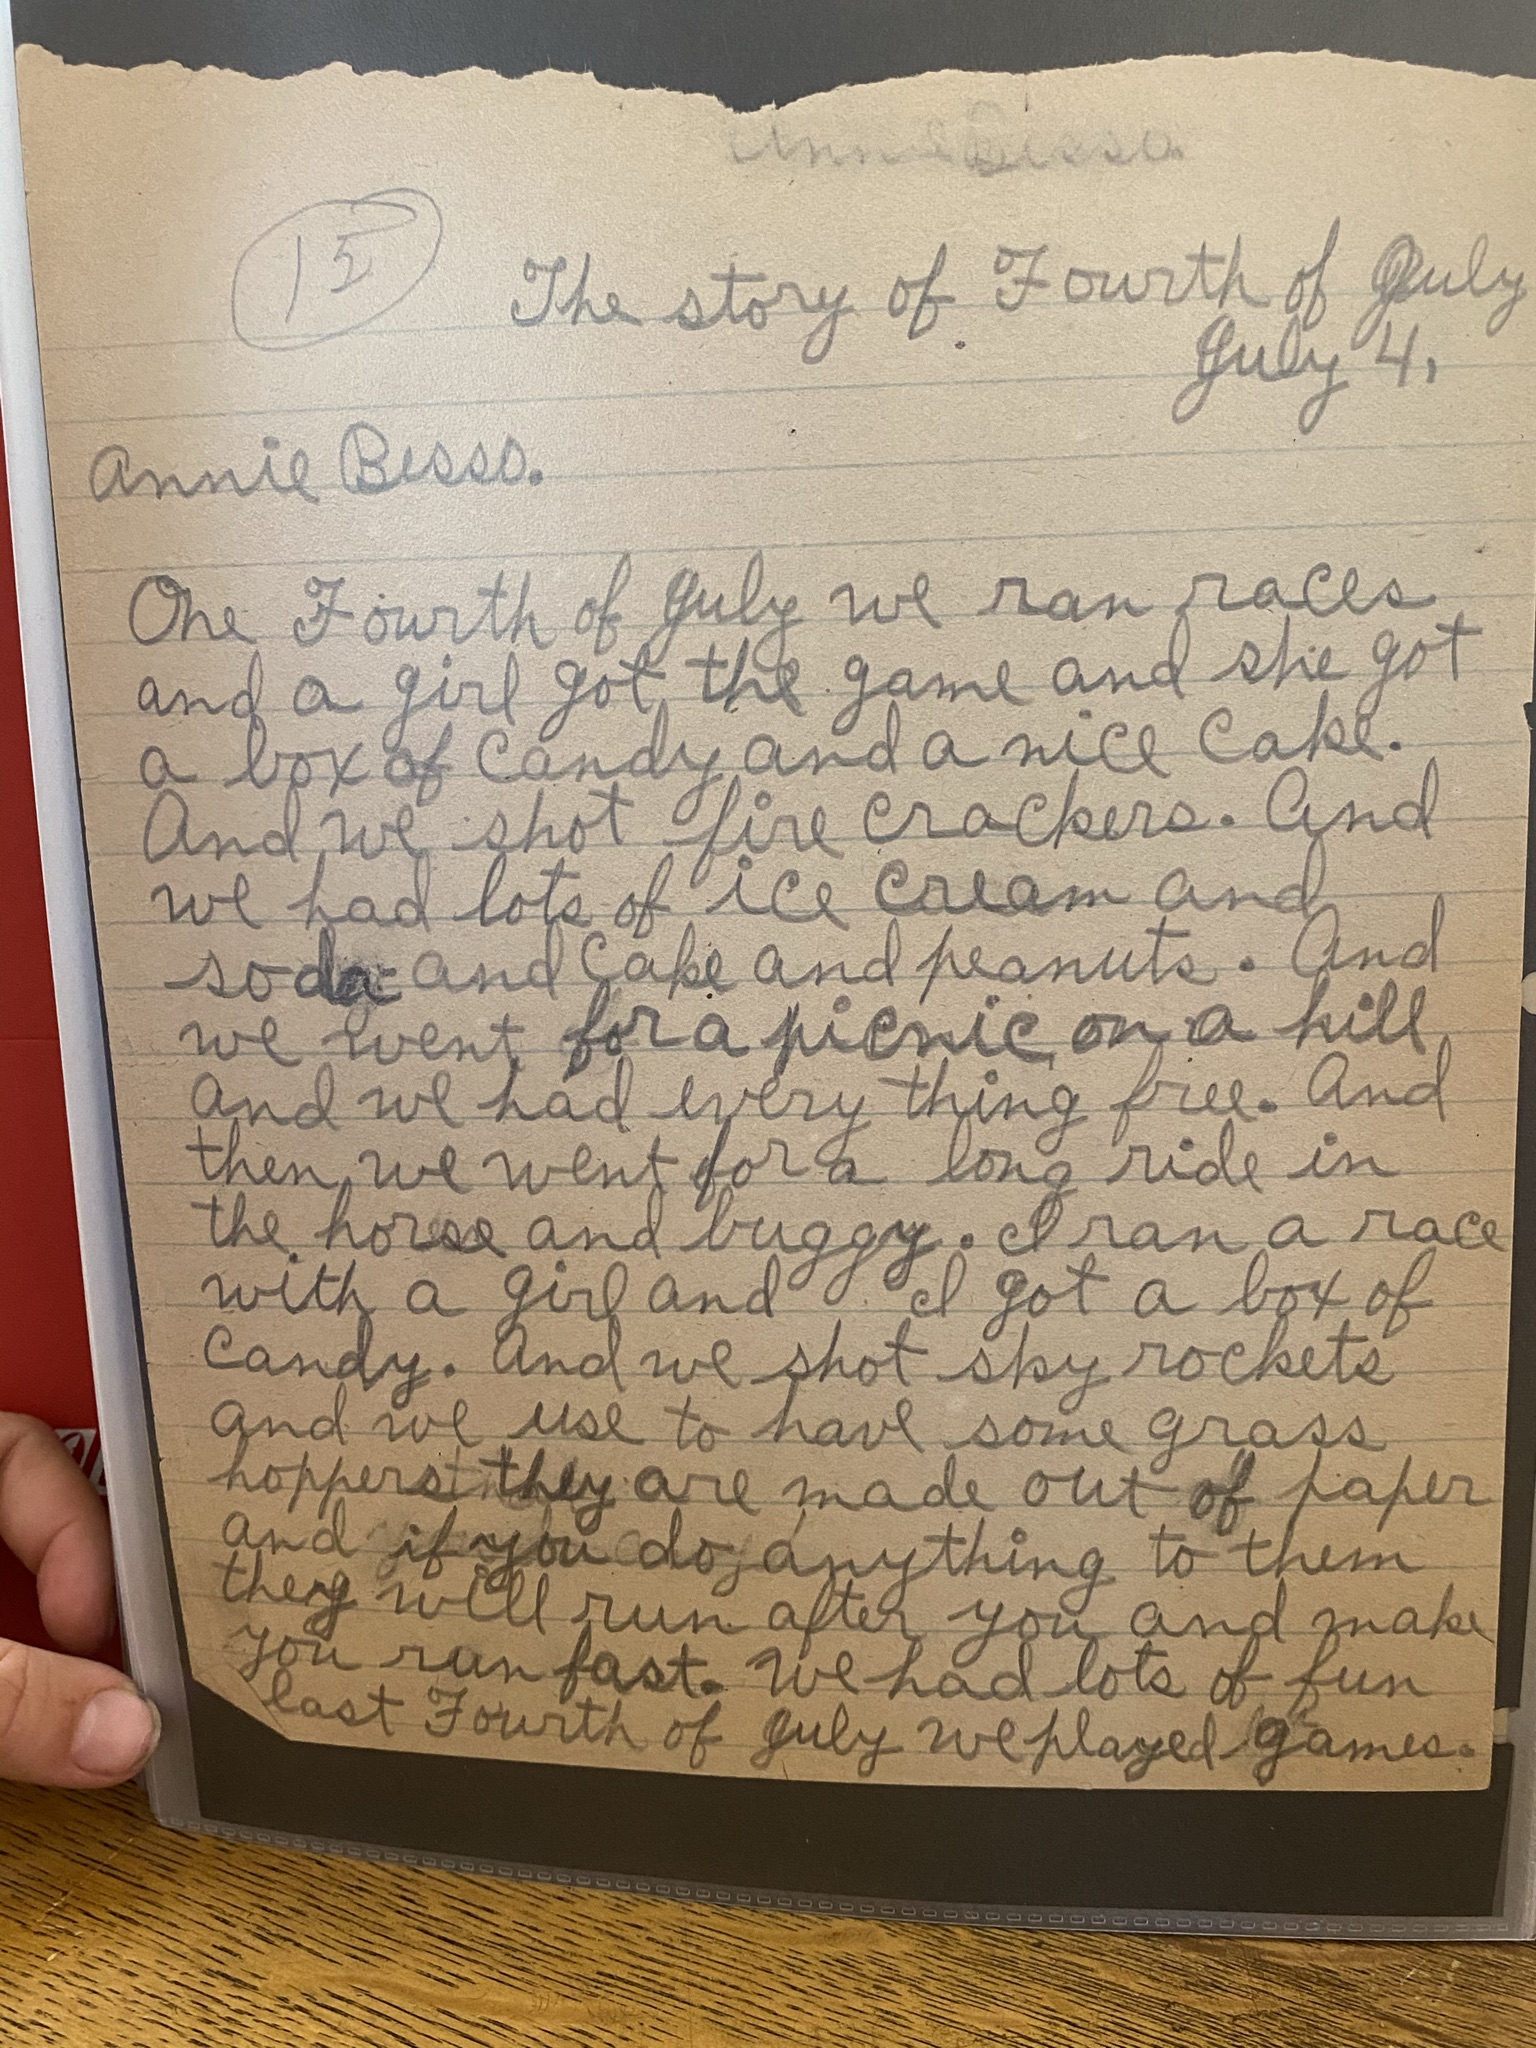 Annie Besso.
15
The story of Fourth of July
July 4,
Annie Besso.
One Fourth of July we ran races
and a girl got the game and she got
a box of candy and a nice cake.
And we shot fire crackers. And
we had lots of ice cream and
soda and cake and peanuts. And
we went for a picnic on a hill
and we had every thing free. And
then we went for a long ride in
the horse and buggy. I ran a race
with a girl and I got a box of
candy. And we shot sky rockets
and we use to have some grass
hoppers they are made out of paper
and if you do anything to them
they will run after you and make
you run fast. We had lots of fun
last Fourth of July we played games.